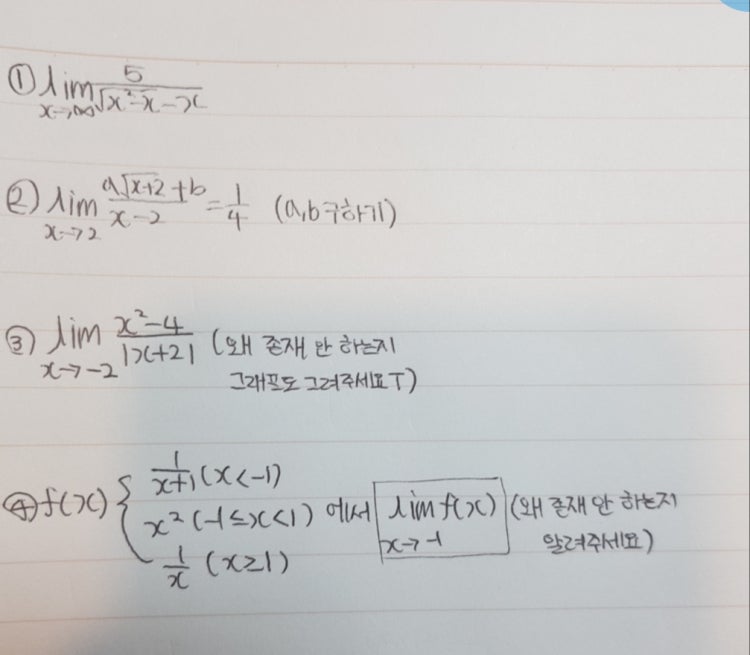 ① lim x→∞ 5/(√(x²-x) -x)
② lim x→2 (a√(x+2) +b)/(x-2) = 1/4 (a,b구하기)
③ lim x→-2 (x²-4)/|x+2| (왜 존재 안 하는지
그래프도 그려주세요T)
④ f(x) { 1/(x+1) (x<-1)
x² (-1≤x<1) 에서 lim x→-1 f(x) (왜 존재 안 하는지
1/x (x≥1) 알려주세요)